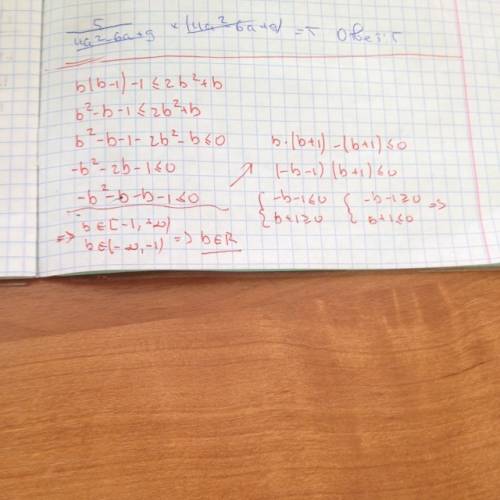 5/(4a²-6a+9) × (4a²-6a+9) = 5 Ответ: 5
b(b-1)-1≤2b²+b
b²-b-1≤2b²+b
b²-b-1-2b²-b≤0
-b²-2b-1≤0
-b²-b-b-1≤0
b·(b+1)-(b+1)≤0
(-b-1)(b+1)≤0
{-b-1≤0 {-b-1≥0 =>
{b+1≥0 {b+1≤0
=> b∈[-1,+∞)
b∈(-∞,-1) => b∈R